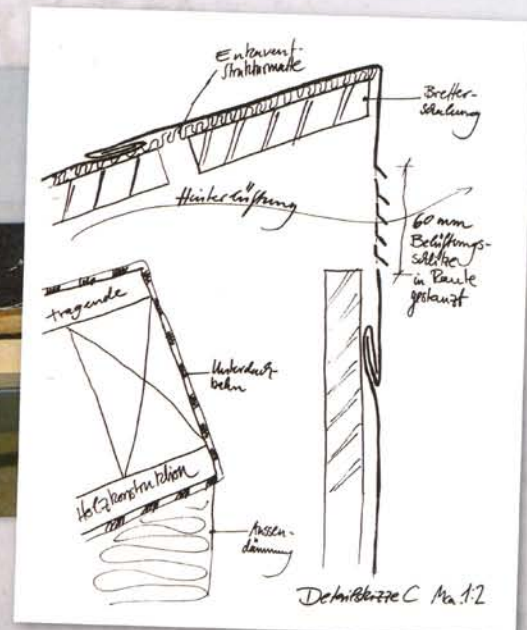 Enkavent-
strukturmatte
Bretter-
schalung
Hinterlüftung
60 mm
Belüftungs-
schlitze
in Raute
gestanzt
tragende
Unterdach-
bahn
Holzkonstruktion
Aussen-
dämmung
Detailskizze C Ma. 1:2